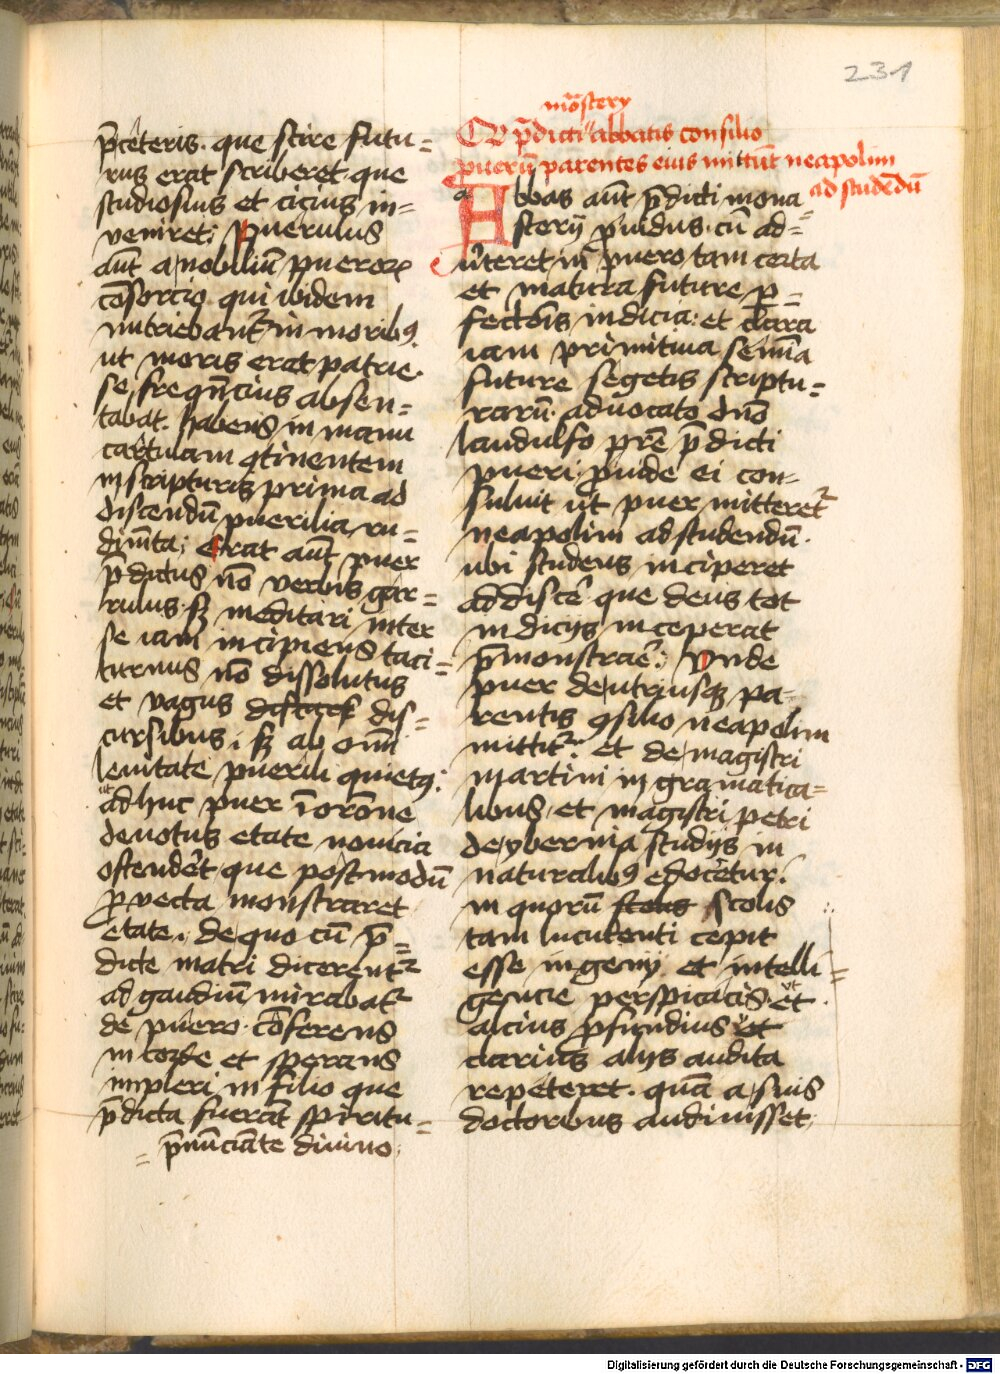 231
p̄ceteris. que scire futu=
rus erat scriberet. que
studiosius et cicius in=
veniret; Puerulus
aūt a nobiliū pueroꝝ
cōsorcio qui ibidem
nutriebant᷑ in moribꝰ
ut moris erat patrie.
se freqn̄cius absen=
tabat. habens in manu
cartulam ꝯtinentem
in scripturis prima ad
discendū puerilia ru=
dim̄ta; Erat aūt puer
p̄dictus nō verbis gar=
rulus. sꝫ meditari inter
se iam incipiens taci=
turnus nō dissolutus
et vagus dis=
cursibus; sꝫ ab om̄i
levitate puerili quietꝰ;
ut
adhuc puer ī orōne
devotus etate novicia
ostenderet que postmodū
ꝓvecta monstraret
etate. de quo cū p̄=
dicte matri dicerent᷑
ad gaudiū mirabat᷑
de puero. cōferens
in corde et sperans
impleri in filio que
p̄dicta fuerāt spiritu=
= p̄nūciāte divino;
mōstery
p̄dicti abbatis consilio
puerū parentes eius mittūt neapolim
ad studēdū
a
Abbas aūt p̄dicti mona=
sterij ꝓvidus. cū ad=
verteret in puero tam certa
et matura future ꝑ=
fectōis indicia: et clara
iam primitiva semīa
future segetis scriptu=
rarū. advocato dn̄o
landulfo pr̄e p̄dicti
pueri ꝓvide ei con=
suluit ut puer mitteret᷑
neapolim ad studendū.
ubi studens inciperet
addiscer̄ que deus tot
indicijs inceperat
p̄monstrar̄e; Unde
puer de utriusqꝫ pa=
rentis ꝯsilio neapolim
mittit᷑. et de magistri
martini in gramatica=
libus. et magistri petri
de ybernia studijs in
naturalibꝰ edocetur.
in quorū scolis
tam luculenti cepit
esse ingenij et intelli=
gencie perspicacis. ut et
alcius ꝓfundius et
clarius alijs audita
repeteret. quā a suis
doctoribus audivisset;
Digitalisierung gefördert durch die Deutsche Forschungsgemeinschaft - DFG